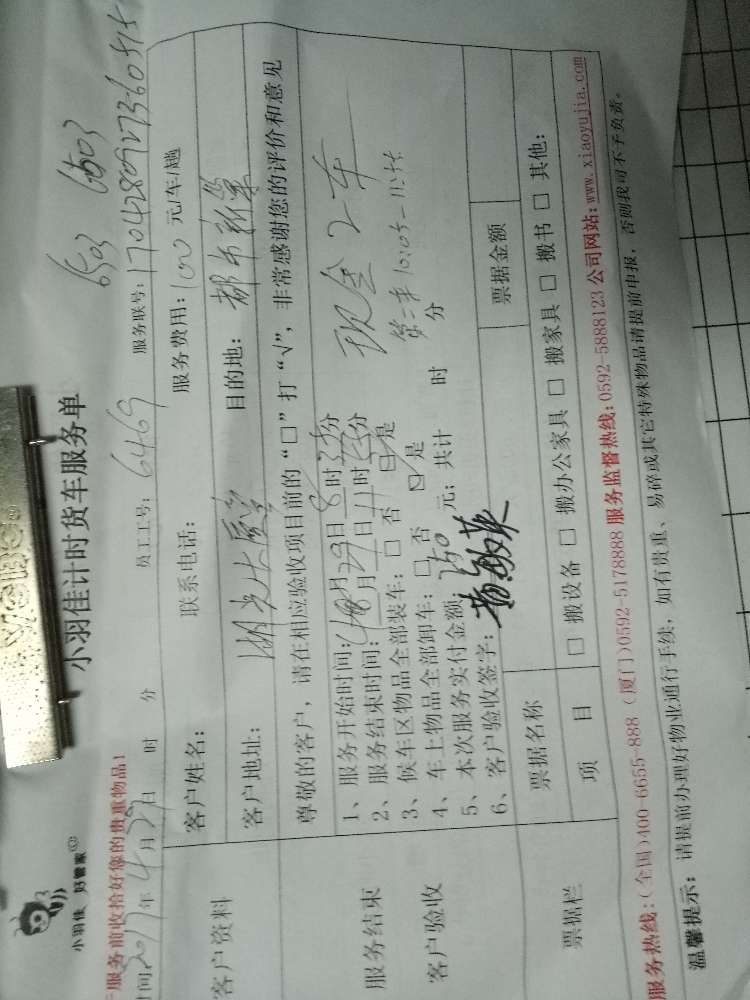 小羽佳 好管家
小羽佳计时货车服务单
6503 6503
服务前收拾好您的贵重物品！
时间2017年4月29日 时 分 员工工号：6469 服务联号：1704280927360515
客户资料
客户姓名： 联系电话： 服务费用：100 元/车/趟
客户地址：湖光大厦 目的地：都市新第
尊敬的客户，请在相应验收项目前的“□”打“√”，非常感谢您的评价和意见
服务结束
客户验收
1、服务开始时间：4月29日8时 分
2、服务结束时间： 月 日11时 分
现金 2车
3、候车区物品全部装车：□ 否 ☑ 是
第二车 10:05-11:55
4、车上物品全部卸车：□ 否 ☑ 是
5、本次服务实付金额 250 元；共计 时 分
6、客户验收签字：
票据栏
票据名称 票据金额
项 目 □ 搬设备 □ 搬办公家具 □ 搬家具 □ 搬书 □ 其他：
服务热线：(全国)400-6655-888 (厦门)0592-5178888 服务监督热线：0592-5888123 公司网站：www.xiaoyujia.com
温馨提示：请提前办理好物业通行手续，如有贵重、易碎或其它特殊物品请提前申报，否则我司可不予负责。